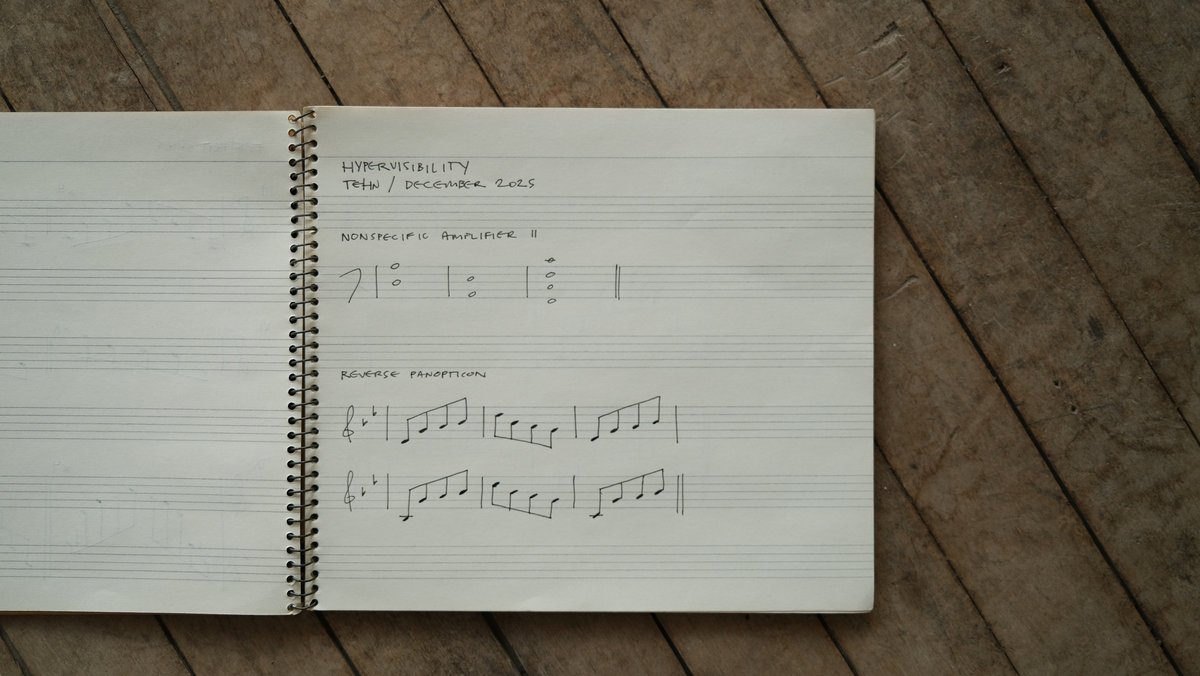 HYPERVISIBILITY
TEHN / DECEMBER 2025
NONSPECIFIC AMPLIFIER II
REVERSE PANOPTICON